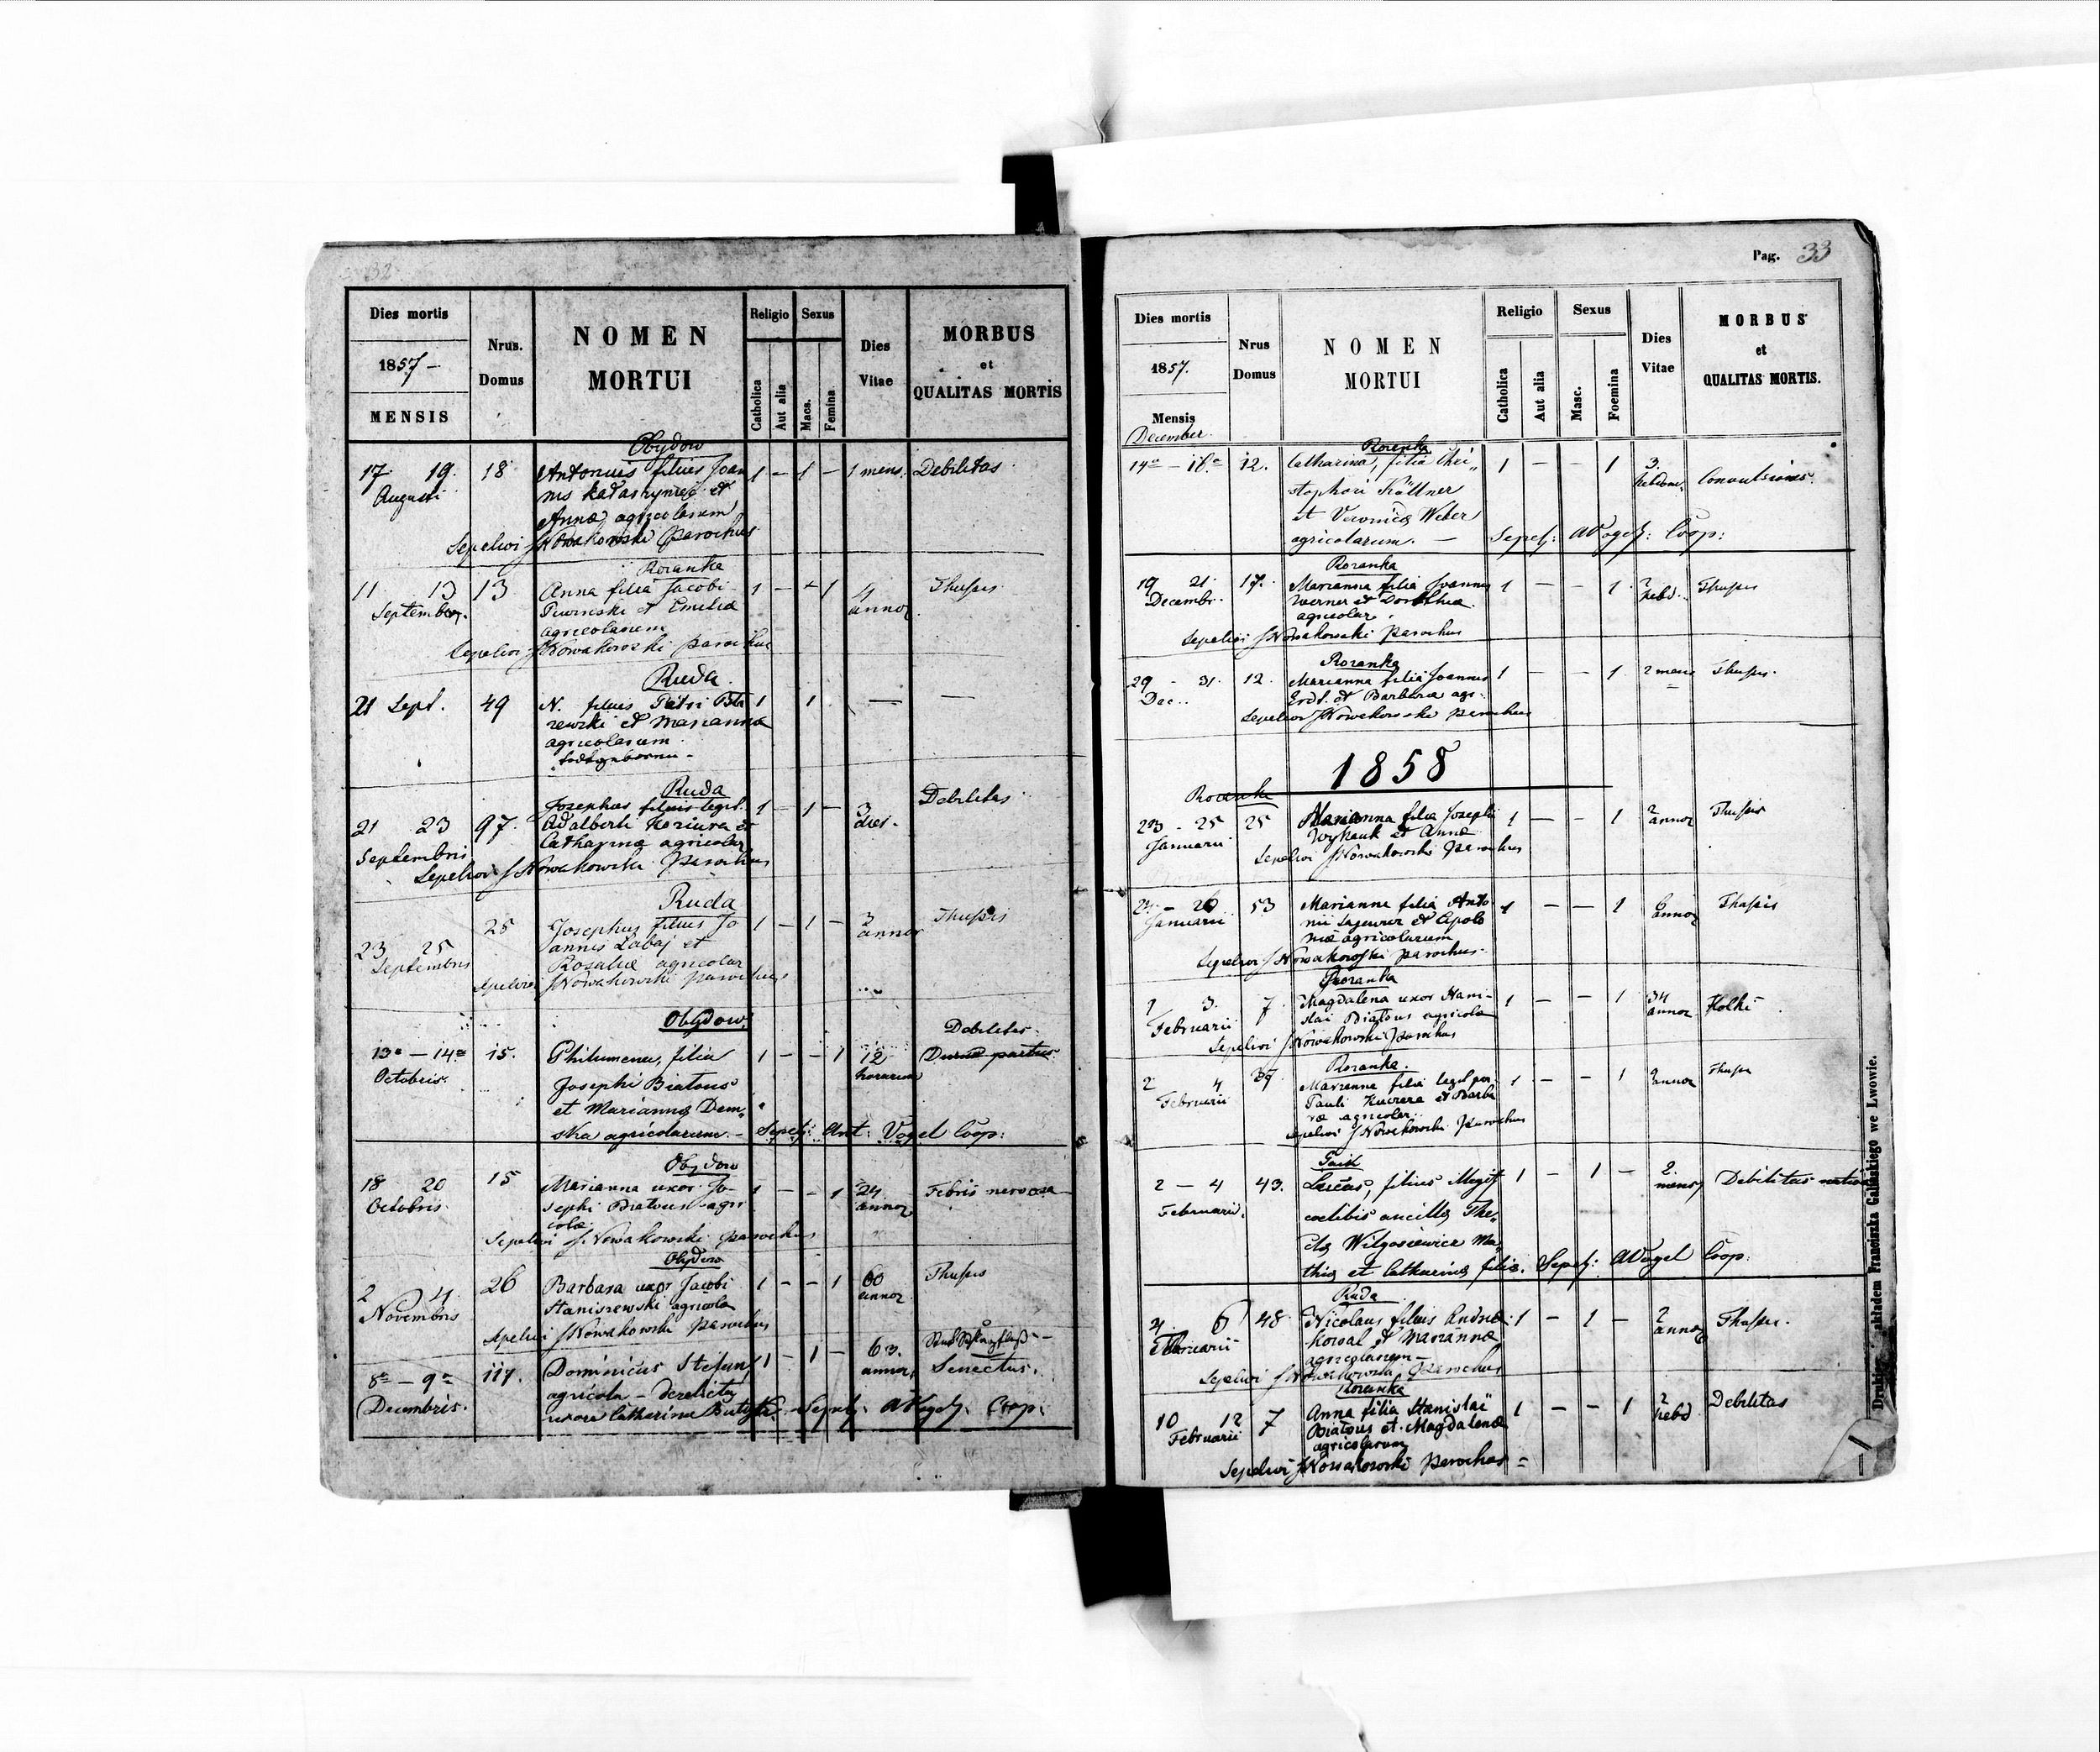 32
Dies mortis
1857 -
MENSIS
Nrus.
Domus
NOMEN
MORTUI
Religio
Catholica
Aut alia
Sexus
Macs.
Femina
Dies
Vitae
MORBUS
et
QUALITAS MORTIS
Obydow
17 19. 18 Antonius filius Joan 1 - 1 - 1 mens. Debilitas
Augusti nis et
Anna agricolarum
Sepelivi J Nowakowski Parochus
Roranka
11 13 13 Anna filia Jacobi 1 - - 1 4 Thussis
Septembr. et Emilia annor
agricolarum
Sepelivi J Nowakowski parochus
Ruda
21 Sept. 49 N. filius Petri 1 1 — —
et Marianna
agricolarum
todtgeboren -
Ruda
Josephus filius legit. 1 - 1 - 3 Debilitas
21 23 97. Adalberti et dies.
Septembris Catharina agricolar
Sepelivi J Nowakowski Parochus
Ruda
25 Josephus filius Jo 1 - 1 - 3 Thussis
23 25 annis Labaj et annor
Septembris Rosalia agricolar
Sepelivi J Nowakowski parochus
Obydow
Debilitas
13a - 14a 15. Philumena, filia 1 - - 1 12 partus
Octobris. Josephi Biatous horarum
et Marianna Dem„
ska agricolarum. - Sepel: Ant: Vogel Coop:
Obydow
18 20 15 Marianna uxor Jo 1 - - 1 24 Febris nervosa
Octobris sephi Biatous agri annor
colae
Sepelivi J. Nowakowski parochus
Obydow
2 4 26 Barbara uxor Jacobi 1 - - 1 60 Thussis
Novembris Staniszewski agricola annor
Sepelivi J Nowakowski Parochus
8a - 9a 117. Dominicus Stefan 1 - 1 - 63. Senectus.
Decembris. agricola - derelicta annor
uxore Catharina Sepel: AVogel: Coop:
Pag. 33
Dies mortis
1857.
Mensis
December.
Nrus
Domus
NOMEN
MORTUI
Religio
Catholica
Aut alia
Sexus
Masc.
Foemina
Dies
Vitae
MORBUS
et
QUALITAS MORTIS.
Roranka
14a - 16.a 12. Catharina, filia Chri„ 1 - - 1 3. Convulsiones.
stophori Köllner hebdom.
et Veronica Weber
agricolarum. - Sepel: AVogel: Coop:
Roranka
19 21 17. Marianna filia Joannis 1 - - 1. 2 Thussis
Decembr. Werner et Dorothea hebd.
agricolar.
Sepelivi J Nowakowski parochus
Roranka
29 - 31. 12. Marianna filia Joannis 1 - - 1 2 mens Thussis.
Dec.. Erdt. et Barbara agr.
Sepelivi J Nowakowski parochus
1858
Roranka
23 - 25 25 Marianna filia Josephi 1 - - 1 2 Thussis
Januarii et Anna annor
Sepelivi J Nowakowski Parochus
- 26 53 Marianna filia Anto 1 - - 1 6 Thussis
Januarii nii et Apolo annor
nia agricolarum
Sepelivi J Nowakowski parochus.
Roranka
1 3. 7 Magdalena uxor Stani- 1 - - 1 34 Kolki
Februarii slai Biatous agricola annor
Sepelivi J Nowakowski Parochus
Roranka.
2 4 39 Marianna filia legit 1 - - 1 annor Thussis
Februarii Pauli Kucera et Barba
ra agricolar.
Sepelivi J Nowakowski Parochus
Gaik
2 - 4 43. Lucas, filius 1 - 1 - 2. Debilitas
Februarii. coelibis ancilla The„ mens.
cla Wilgosiewicz Ma„
thia et Catharina filia. Sepel: AVogel Coop:
Ruda
4. 6 48. Nicolaus filius Andrea 1 - 1 - 2 Thussis.
Februarii Kowal et Marianna annor
agricolarum -
Sepelivi J Nowakowski Parochus
Roranka
10 12 7 Anna filia Stanislai 1 - - 1 2 Debilitas
Februarii Biatous et Magdalena hebd
agricolarum
Sepelivi J Nowakowski Parochus =
nakładem Franciszka Galińskiego we Lwowie.